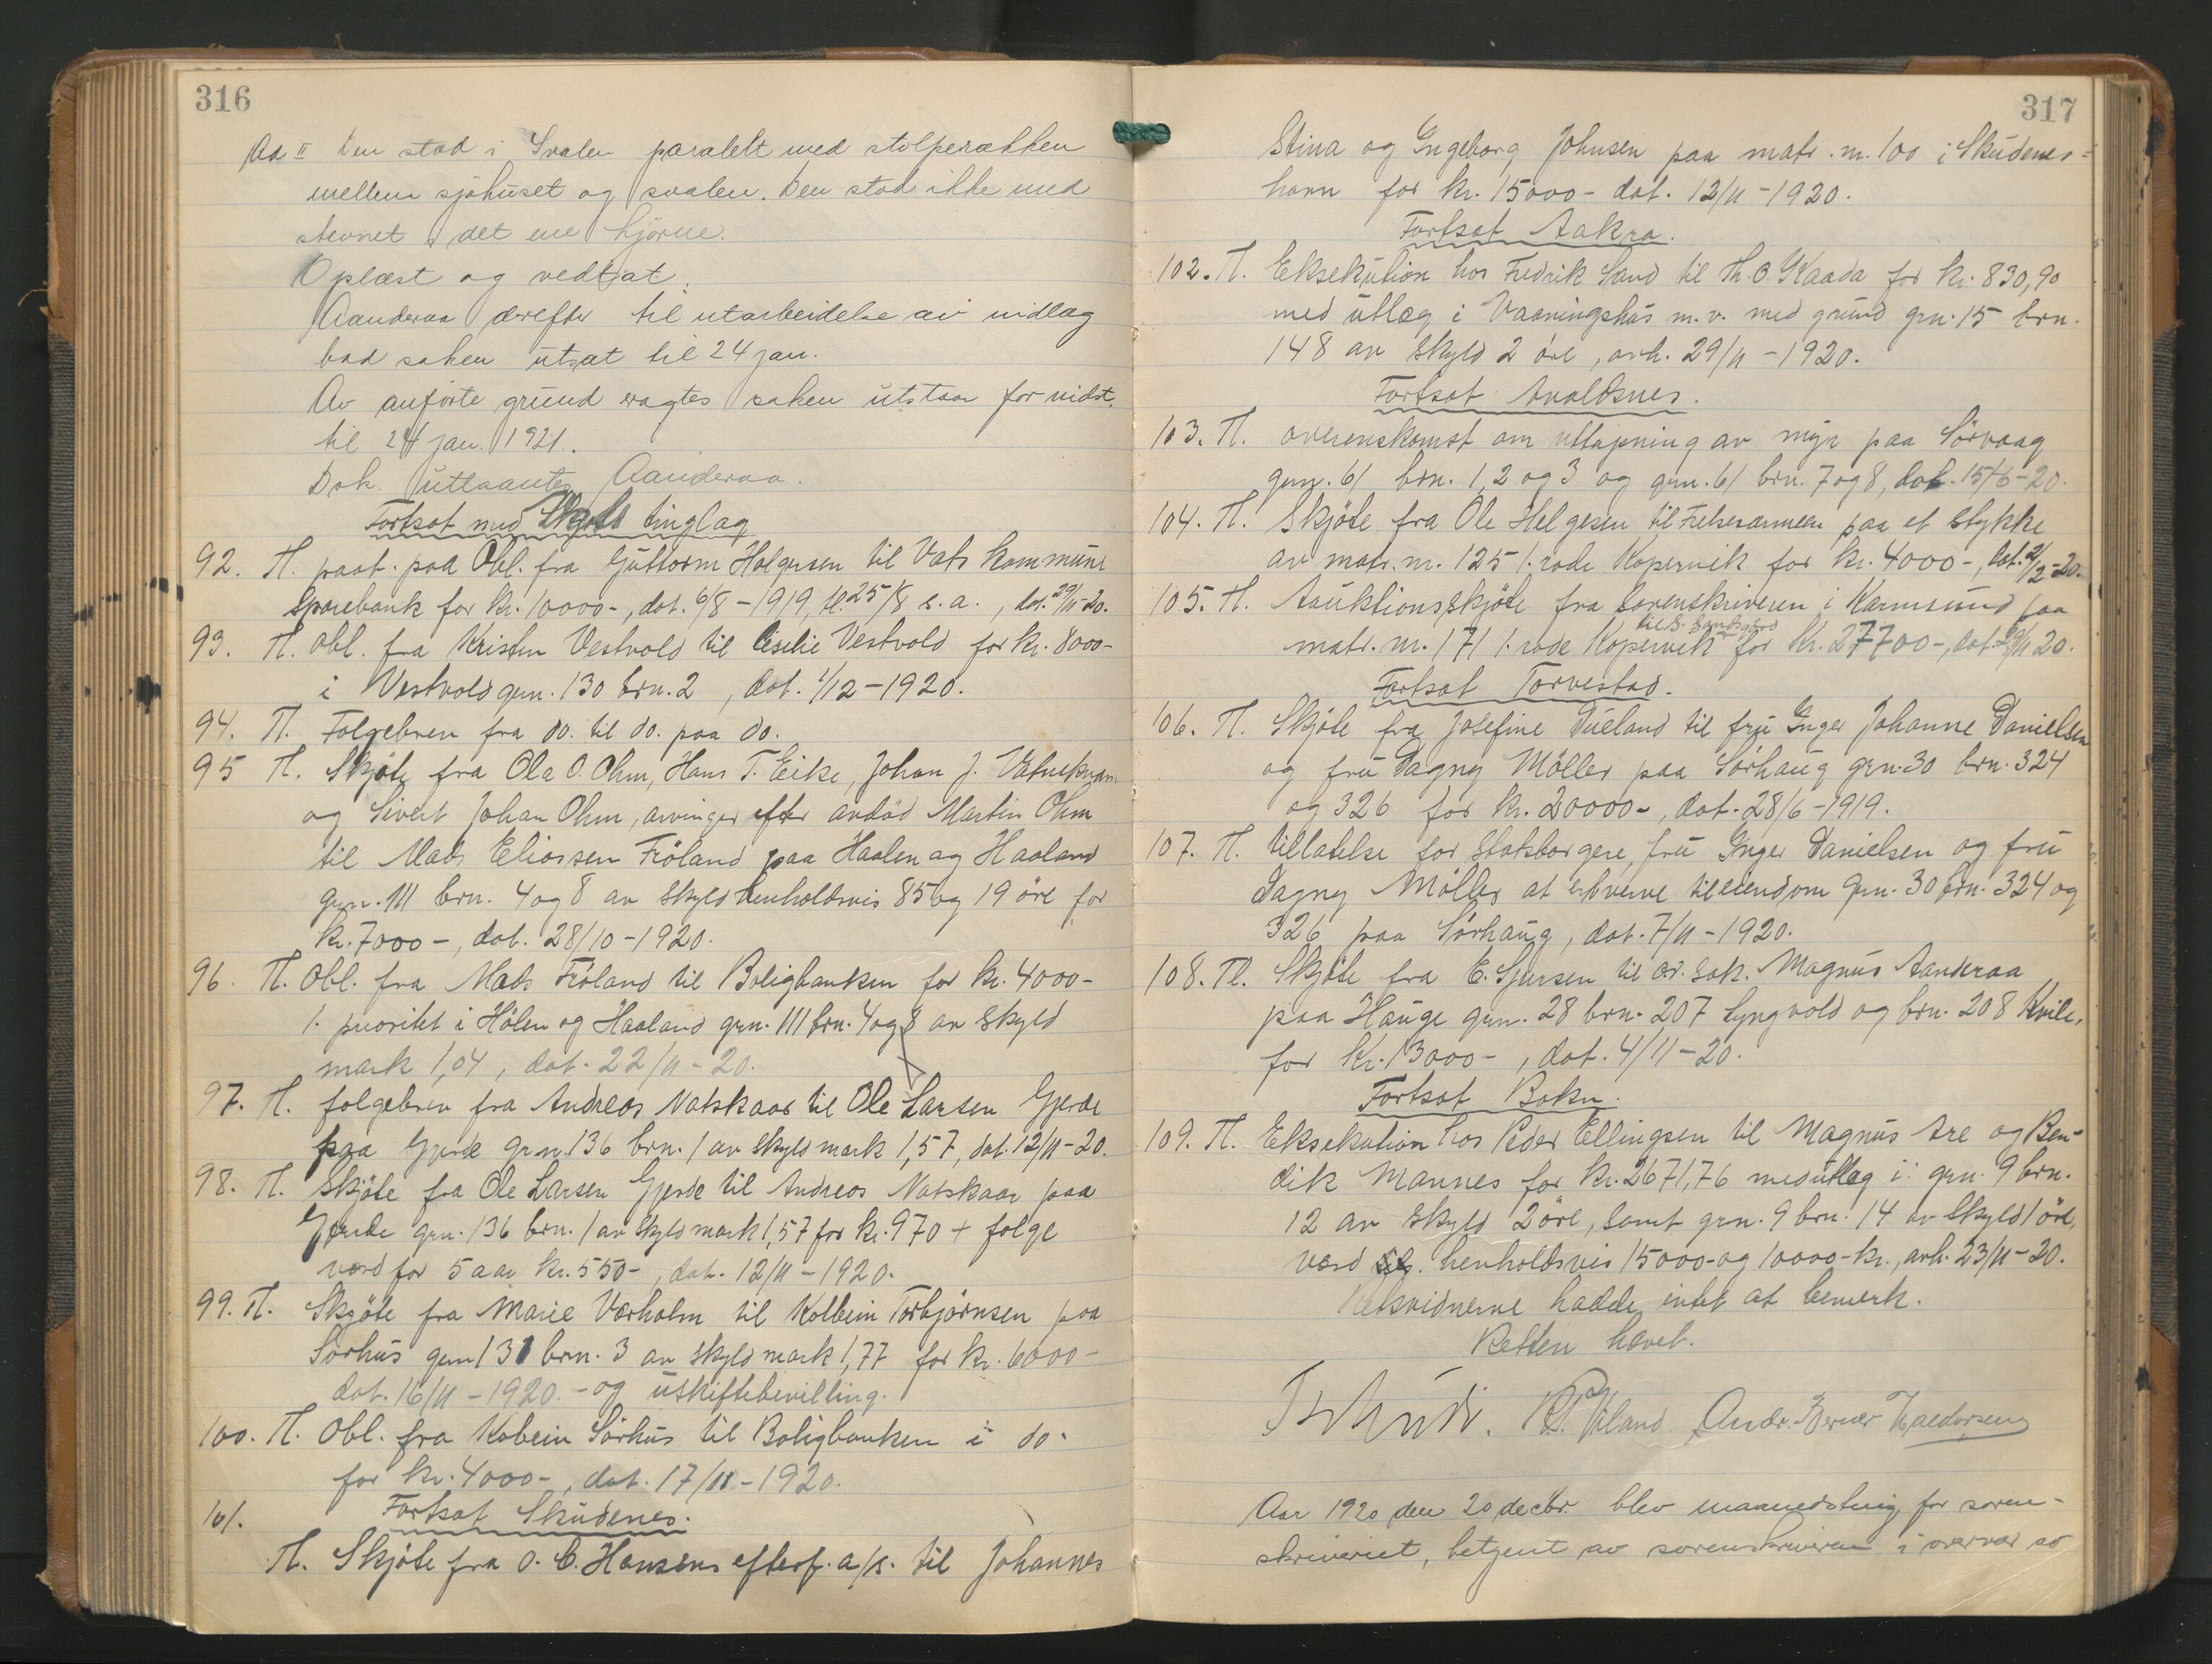 316
Ad II Den stod i Svalen paralelt med stolperækken
mellem sjøhuset og svalen. Den stod ikke med
stevnet i det ene hjørne.
Oplæst og vedtat.
Aanderaa derefter til utarbeidelse av indlæg
bad saken utsat til 24 jan.
Av anførte grund eragtes saken utstaar for vidst.
til 24 jan. 1921.
Dok. utlaantes Aanderaa.
Fortsat med Skjold tinglag
92. Tl. paat. paa Obl. fra Guttorm Holgersen til Vats kommune
Sparebank for kr. 10000-, dat. 6/8-1919, tl. 25/8 s.a., dat. 29/11-20.
93. Tl. Obl. fra Kristen Vestvold til Cisilie Vestvold for kr. 8000-
i Vestvold grn. 130 brn. 2, dat. 1/12-1920.
94. Tl. Følgebrev fra do. til do. paa do.
95 Tl. Skjøte fra Ola O. Ohm, Hans T. Eike, Johan J. Vatnekvam
og Sivert Johan Ohm, arvinger efter avdød Martin Ohm
til Mads Eliassen Frøland paa Haalen og Haaland
grn. 111 brn. 4 og 8 av skyld henholdsvis 85 og 19 öre for
kr. 7000-, dat. 28/10-1920.
96. Tl. Obl. fra Mads Frøland til Boligbanken for kr. 4000-
1. prioritet i Hölen og Haaland grn. 111 brn. 4 og 8 av skyld
mark 1,04, dat. 22/11-20.
97. Tl. følgebrev fra Andreas Natskaar til Ole Larsen Gjerde
paa Gjerde grn. 136 brn. 1 av skyld mark 1,57, dat. 12/11-20.
98. Tl. Skjöte fra Ole Larsen Gjerde til Andreas Natskaar paa
Gjerde grn. 136 brn. 1 av skyld mark 1,57 for kr. 970 + folge
værd for 5 aar kr. 550-, dat. 12/11-1920.
99. Tl. Skjøte fra Marie Værholm til Kolbein Torbjørnsen paa
Sørhus grn 131 brn. 3 av skyld mark 1,77 for kr. 6000-
dat. 16/11-1920.- og uskiftebevilling.
100. Tl. Obl. fra Kobein Sørhus til Boligbanken i do.
for kr. 4000-, dat. 17/11-1920.
101. Fortsat Skudenes.
Tl. Skjöte fra O. C. Hansens efterf. a/s. til Johannes
317
Stina og Ingeborg Johnsen paa matr. nr. 100 i Skudenes=
havn for kr. 15000- dat. 12/11-1920.
Fortsat Aakra.
102. Tl. Eksekution hos Fredrik Sand til Th. O. Kaada for kr. 830,90
med utlæg i Vaaningshus m.v. med grund grn. 15 brn.
148 av skyld 2 öre, avh. 29/11-1920.
Fortsat Avaldsnes.
103. Tl. overenskomst om uttapning av myr paa Sörvaag
grn. 61 brn. 1,2 og 3 og grn. 61 brn. 7 og 8, dat. 15/6-20.
104. Tl. Skjöte fra Ole Helgesen til Frelsesarmeen paa et stykke
av matr. nr. 125 1. rode Kopervik for kr. 4000-, dat. 2/12-20.
105. Tl. Auktionsskjöte fra Sorenskriveren i Karmsund paa
matr. nr. 171 1. rode Kopervik for kr. 27700-, dat. 29/11 20.
Fortsat Torvestad.
106. Tl. Skjöte fra Josefine Dueland til fru Inger Johanne Danielsen
og fru Dagny Möller paa Sörhaug grn. 30 brn. 324
og 326 for kr. 20000-, dat. 28/6-1919.
107. Tl. tillatelse for statsborgere, fru Inger Danielsen og fru
Dagny Möller at erhverve til eiendom grn. 30 brn. 324 og
326 paa Sörhaug, dat. 7/11-1920.
108. Tl. Skjöte fra E. Sjursen til ov. sak. Magnus Aanderaa
paa Hauge grn. 28 brn. 207 Lyngvold og brn. 208 Kvile,
for kr. 13000-, dat. 4/11-20.
Fortsat Bokn.
109. Tl. Eksekution hos Peder Ellingsen til Magnus Are og Ben-
dik Mannes for kr. 2671,76 med utlæg i: grn. 9 brn.
12 av skyld 2 öre, samt grn. 9 brn. 14 av skyld 1 öre,
værd henholdsvis 15000- og 10000-kr., avh. 23/11-20.
Retsvidnerne hadde intet at bemerk.
Retten hævet.
Andr. Berner Haldorsen
Aar 1920 den 20 decbr. blev maanedsting for soren-
skriveriet, betjent av sorenskriveren i overvær av